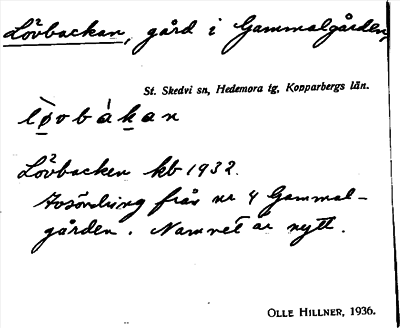 Lövbackan, gård i Gammalgården,
St. Skedvi sn, Hedemora tg, Kopparbergs län.
lø̀vbàkan
Lövbacken kb 1932.
Avsöndring från nr 4 Gammal-
gården. Namnet är nytt.
OLLE HILLNER, 1936.